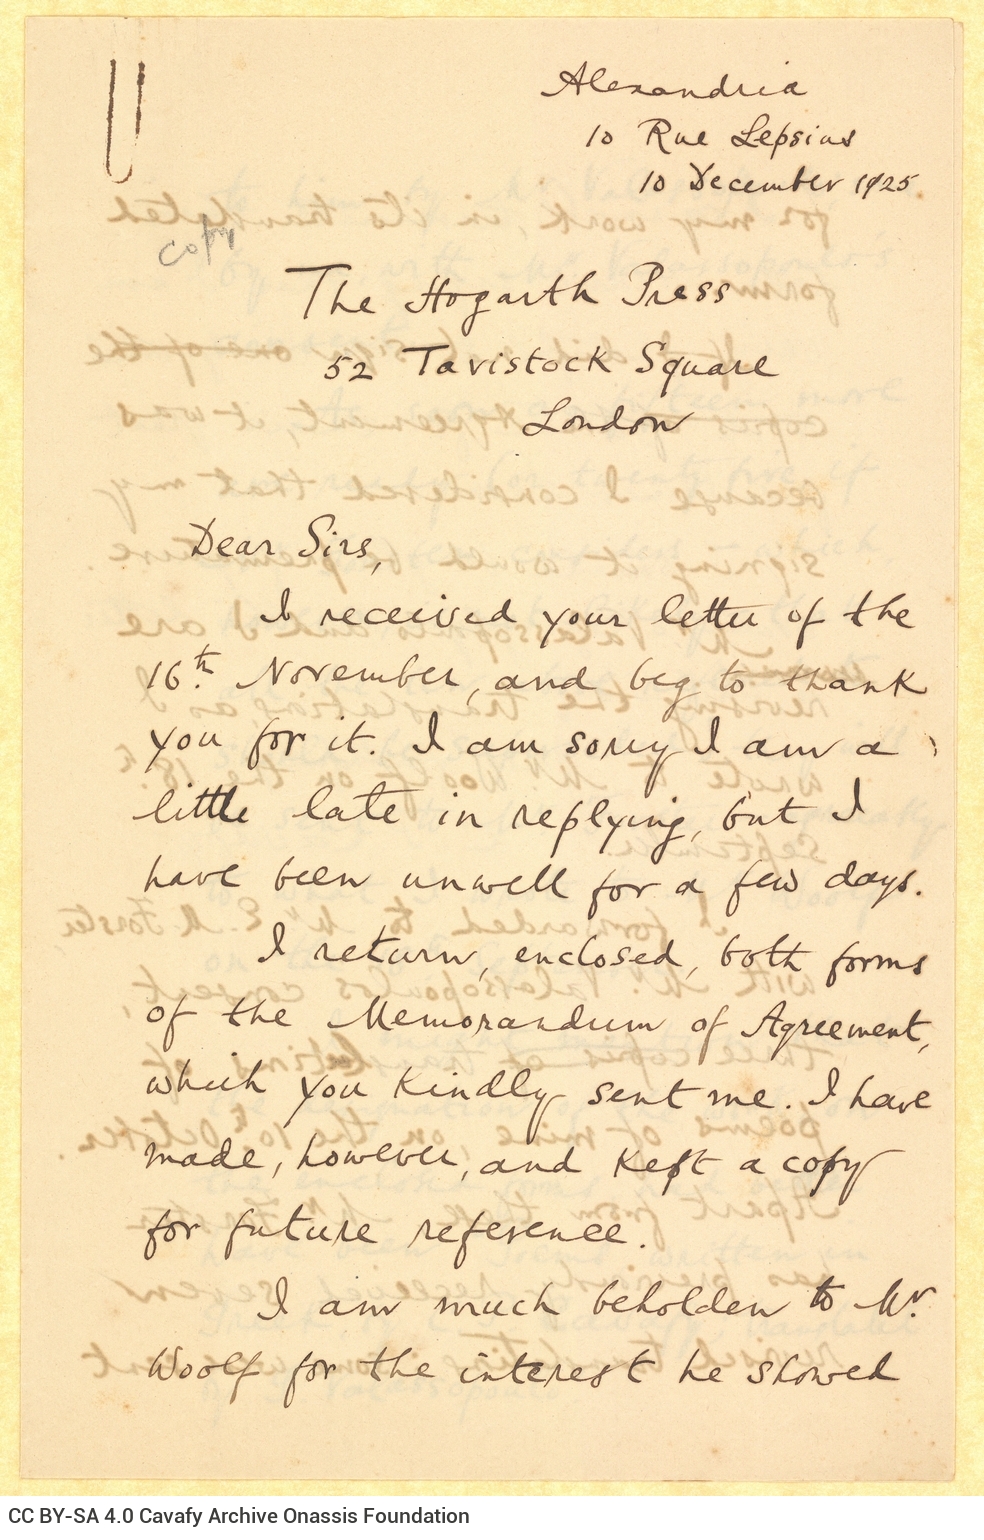 Alexandria
10 Rue Lepsius
10 December 1925
copy
The Hogarth Press
52 Tavistock Square
London
Dear Sirs,
I received your letter of the
16th. November, and beg to thank
you for it. I am sorry I am a
little late in replying, but I
have been unwell for a few days.
I return, enclosed, both forms
of the Memorandum of Agreement,
which you kindly sent me. I have
made, however, and kept a copy
for future reference.
I am much beholden to Mr.
Woolf for the interest he showed
CC BY-SA 4.0 Cavafy Archive Onassis Foundation